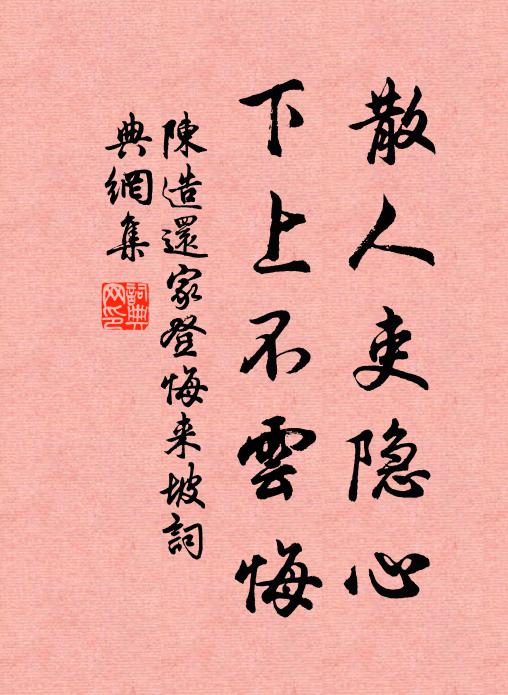 散人吏隐心
下上不雲悔
陳造還家登悔来坡詞
典網集
詞典网印